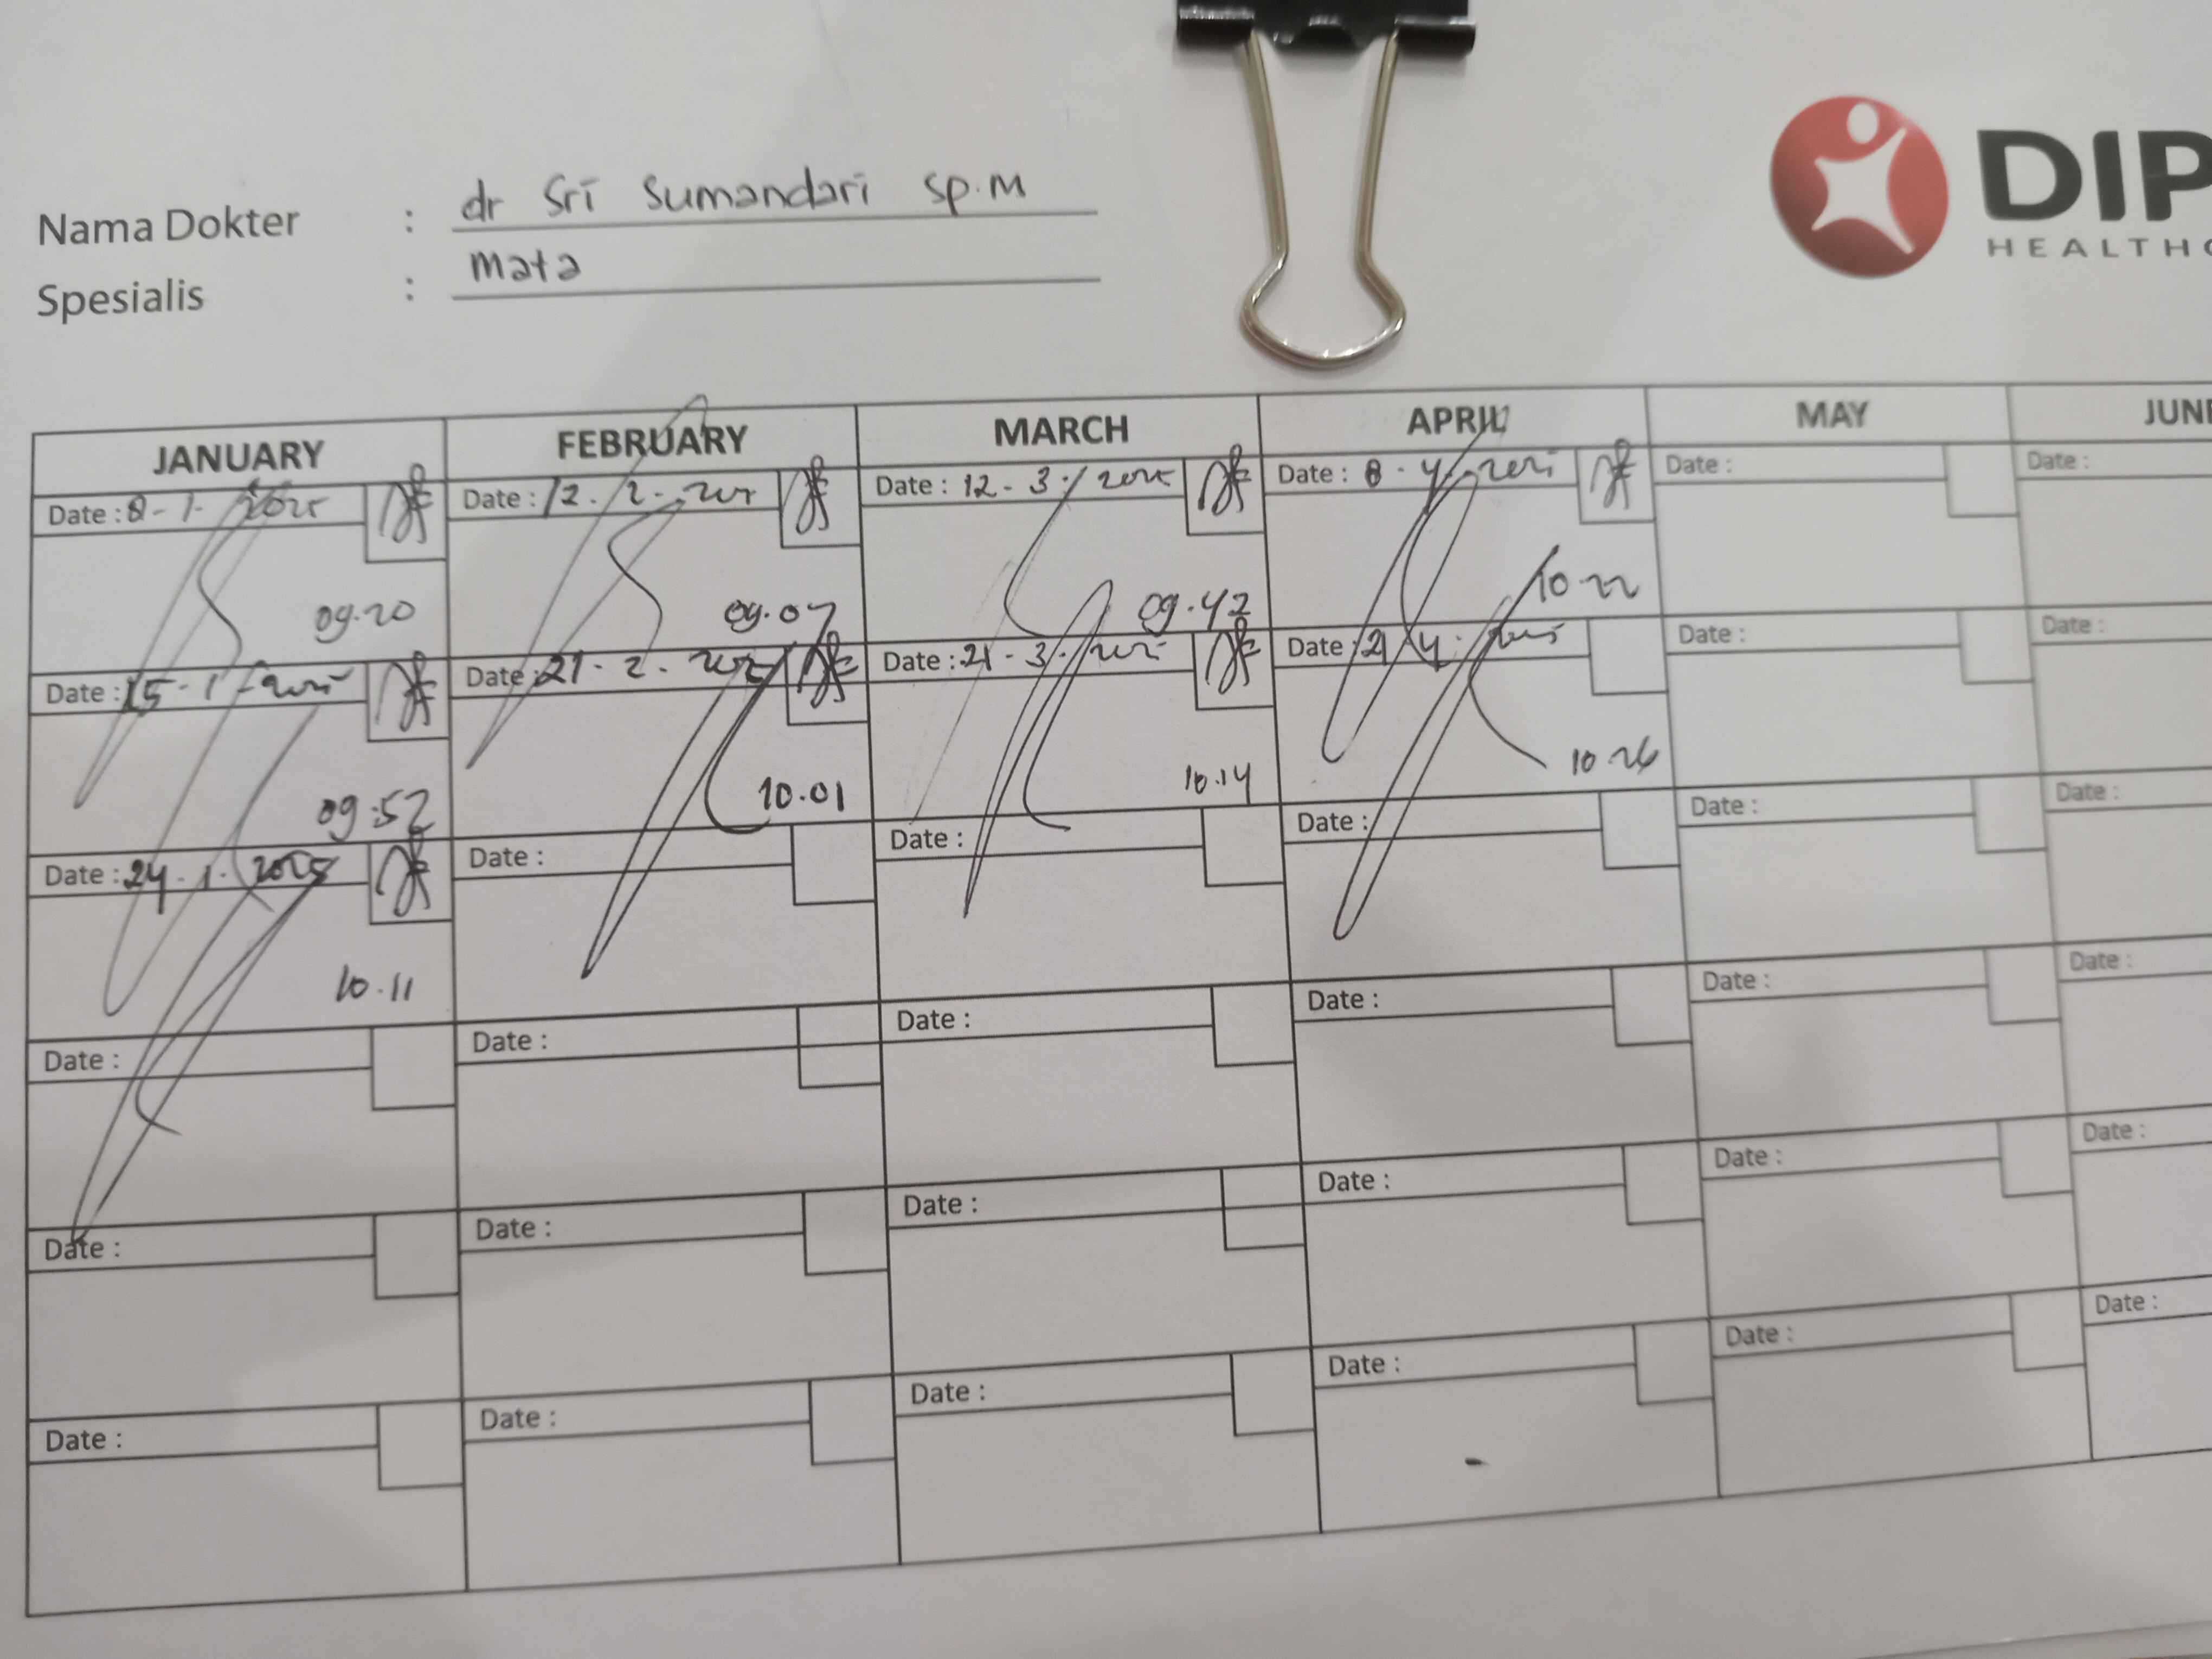 Nama Dokter : dr Sri Sumandari Sp.M
Spesialis : Mata
DIP
HEALTHC
JANUARY FEBRUARY MARCH APRIL MAY JUN
Date : 8 - 1 - 2025 Date : 12 - 2 - Date : 12 - 3 - 2025 Date : 8 - 4 - Date : Date :
09.20 09.07 09.42 10.22
Date : 15 - 1 - Date : 21 - 2 - Date : 21 - 3 - Date : 21 4 - Date : Date :
09:52 10.01 10.14 10.26
Date : 24 - 1 - 2025 Date : Date : Date : Date : Date :
10.11
Date : Date : Date : Date : Date : Date :
Date : Date : Date : Date : Date : Date :
Date : Date : Date : Date : Date : Date :